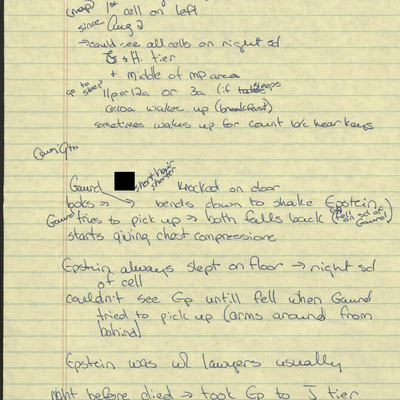 (map) 1st cell on left
since Aug 2
→ could see all cells on right sd
G + H tier
+ middle of mp area
go to sleep 11p or 12a or 3a (if sleeps
wakes up (breakfast)
sometimes wakes up for count b/c hear keys
Guard short hair shorter knocked on door
looks → bends down to shake Epstein
Guard tries to pick up → both falls back (Ep fell sd of Guard)
starts giving chest compressions
Epstein always slept on floor → right sd
of cell
couldn't see Ep untill fell when Guard
tried to pick up (arms around from
behind)
Epstein was w/ lawyers usually
right before died → took Ep to J tier